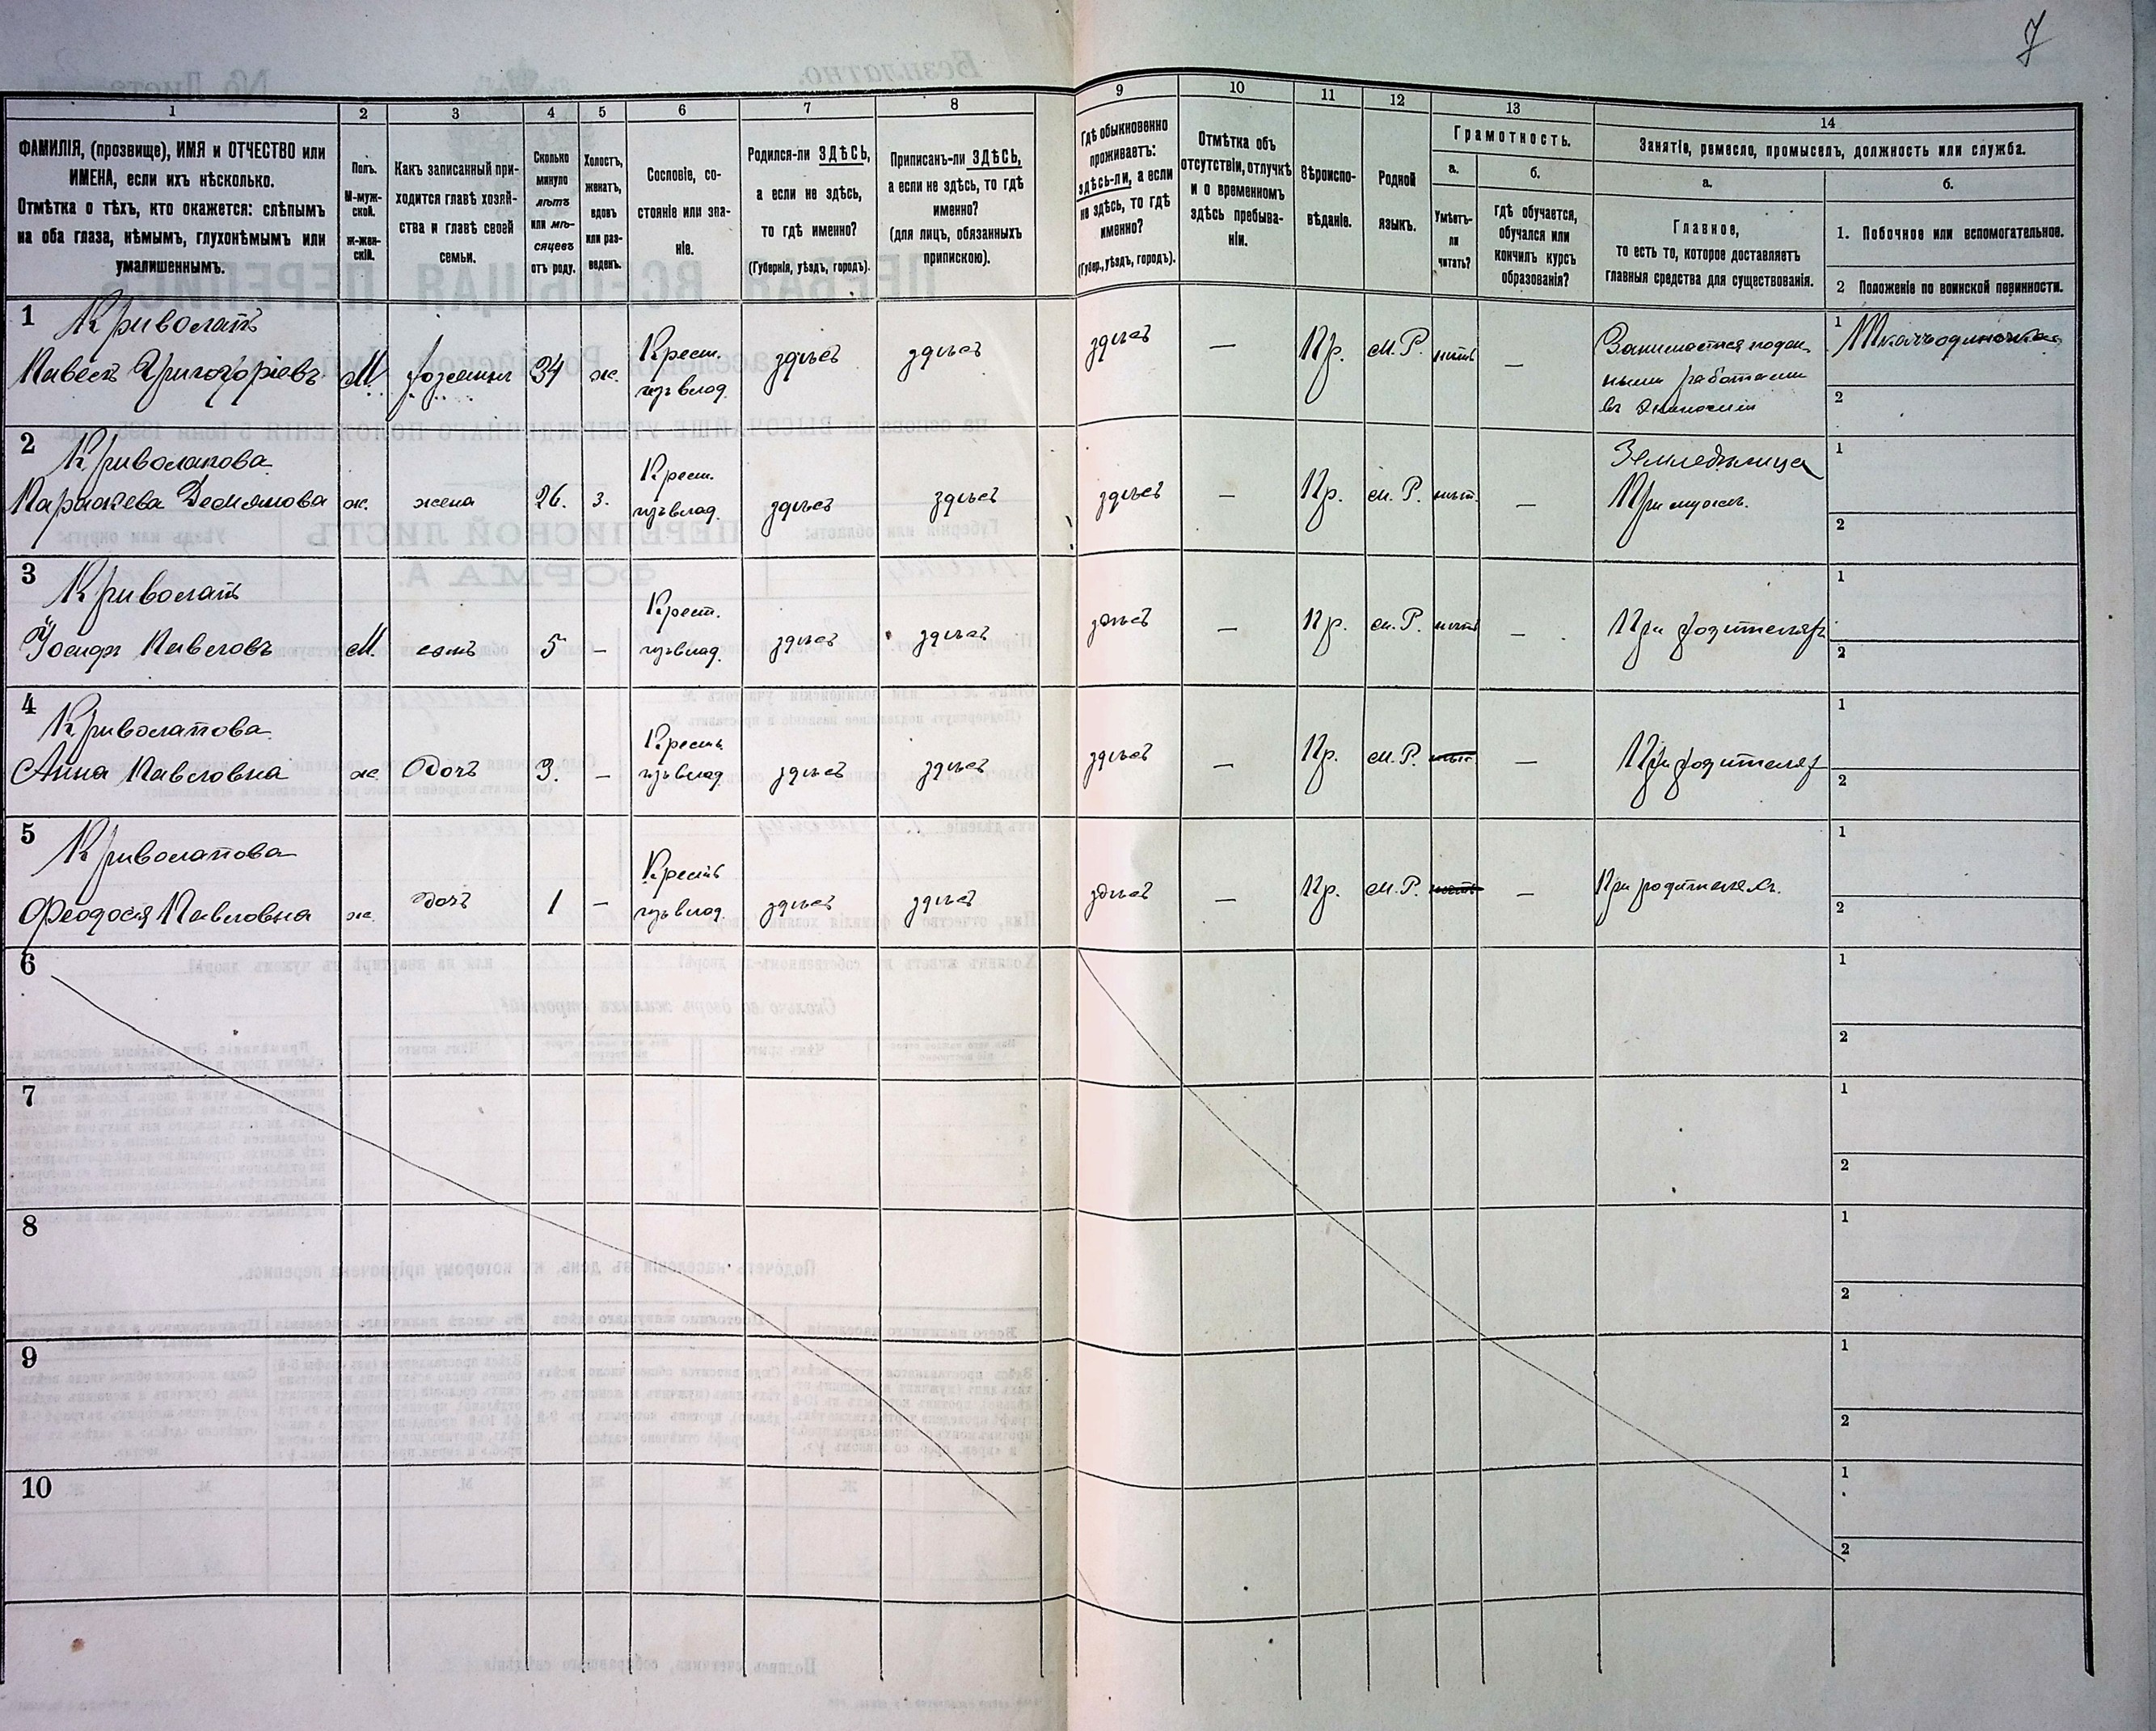 7
1
2
3
4
5
6
7
8
9
10
11
12
13
14
ФАМИЛІЯ, (прозвище), ИМЯ и ОТЧЕСТВО или
ИМЕНА, если ихъ нѣсколько.
Отмѣтка о тѣхъ, кто окажется: слѣпымъ
на оба глаза, нѣмымъ, глухонѣмымъ или
умалишеннымъ.
Полъ.
М-муж-
ской.
Ж-жен-
скій.
Какъ записанный при-
ходится главѣ хозяй-
ства и главѣ своей
семьи.
Сколько
минуло
лѣтъ
или мѣ-
сяцевъ
отъ роду.
Холостъ,
женатъ,
вдовъ
или раз-
веденъ.
Сословіе, со-
стояніе или зва-
ніе.
Родился-ли ЗДѢСЬ,
а если не здѣсь,
то гдѣ именно?
(Губернія, уѣздъ, городъ).
Приписанъ-ли ЗДѢСЬ,
а если не здѣсь, то гдѣ
именно?
(для лицъ, обязанныхъ
припискою).
Гдѣ обыкновенно
проживаетъ:
здѣсь-ли, а если
не здѣсь, то гдѣ
именно?
(Губер., уѣздъ, городъ).
Отмѣтка объ
отсутствіи, отлучкѣ
и о временномъ
здѣсь пребыва-
ніи.
Вѣроиспо-
вѣданіе.
Родной
языкъ.
Грамотность.
а.
Умѣетъ-
ли
читать?
б.
гдѣ обучается,
обучался или
кончилъ курсъ
образованія?
Занятіе, ремесло, промыселъ, должность или служба.
а.
Главное,
то есть то, которое доставляетъ
главныя средства для существованія.
б.
1. Побочное или вспомогательное.
2 Положеніе по воинской повинности.
1 Криволапъ
Павелъ Григорьевъ М хозяинъ 34 ж. Крест. изъ влад. здѣсь здѣсь здѣсь — Пр. М.Р. нѣтъ —
Занимается поден-
ными работами
въ экономіи
1
2
2 Криволапова
Демьянова ж. жена 26. з. Крест. изъ влад. здѣсь здѣсь здѣсь — Пр. М.Р. нѣтъ —
Земледѣлица
При мужѣ.
1
2
3 Криволапъ
Іосифъ Павловъ М. сынъ 5 — Крест. изъ влад. здѣсь здѣсь здѣсь — Пр. М.Р. нѣтъ — При родителяхъ
1
2
4 Криволапова
Анна Павловна ж. дочь 3. — Крестъ. изъ влад. здѣсь здѣсь здѣсь — Пр. М.Р. нѣтъ — При родителях
1
2
5 Криволапова
Феодосія Павловна ж. дочь 1 — Крестъ изъ влад. здѣсь здѣсь здѣсь — Пр. М.Р. нѣтъ — При родителяхъ.
1
2
6
1
2
7
1
2
8
1
2
9
1
2
10
1
2